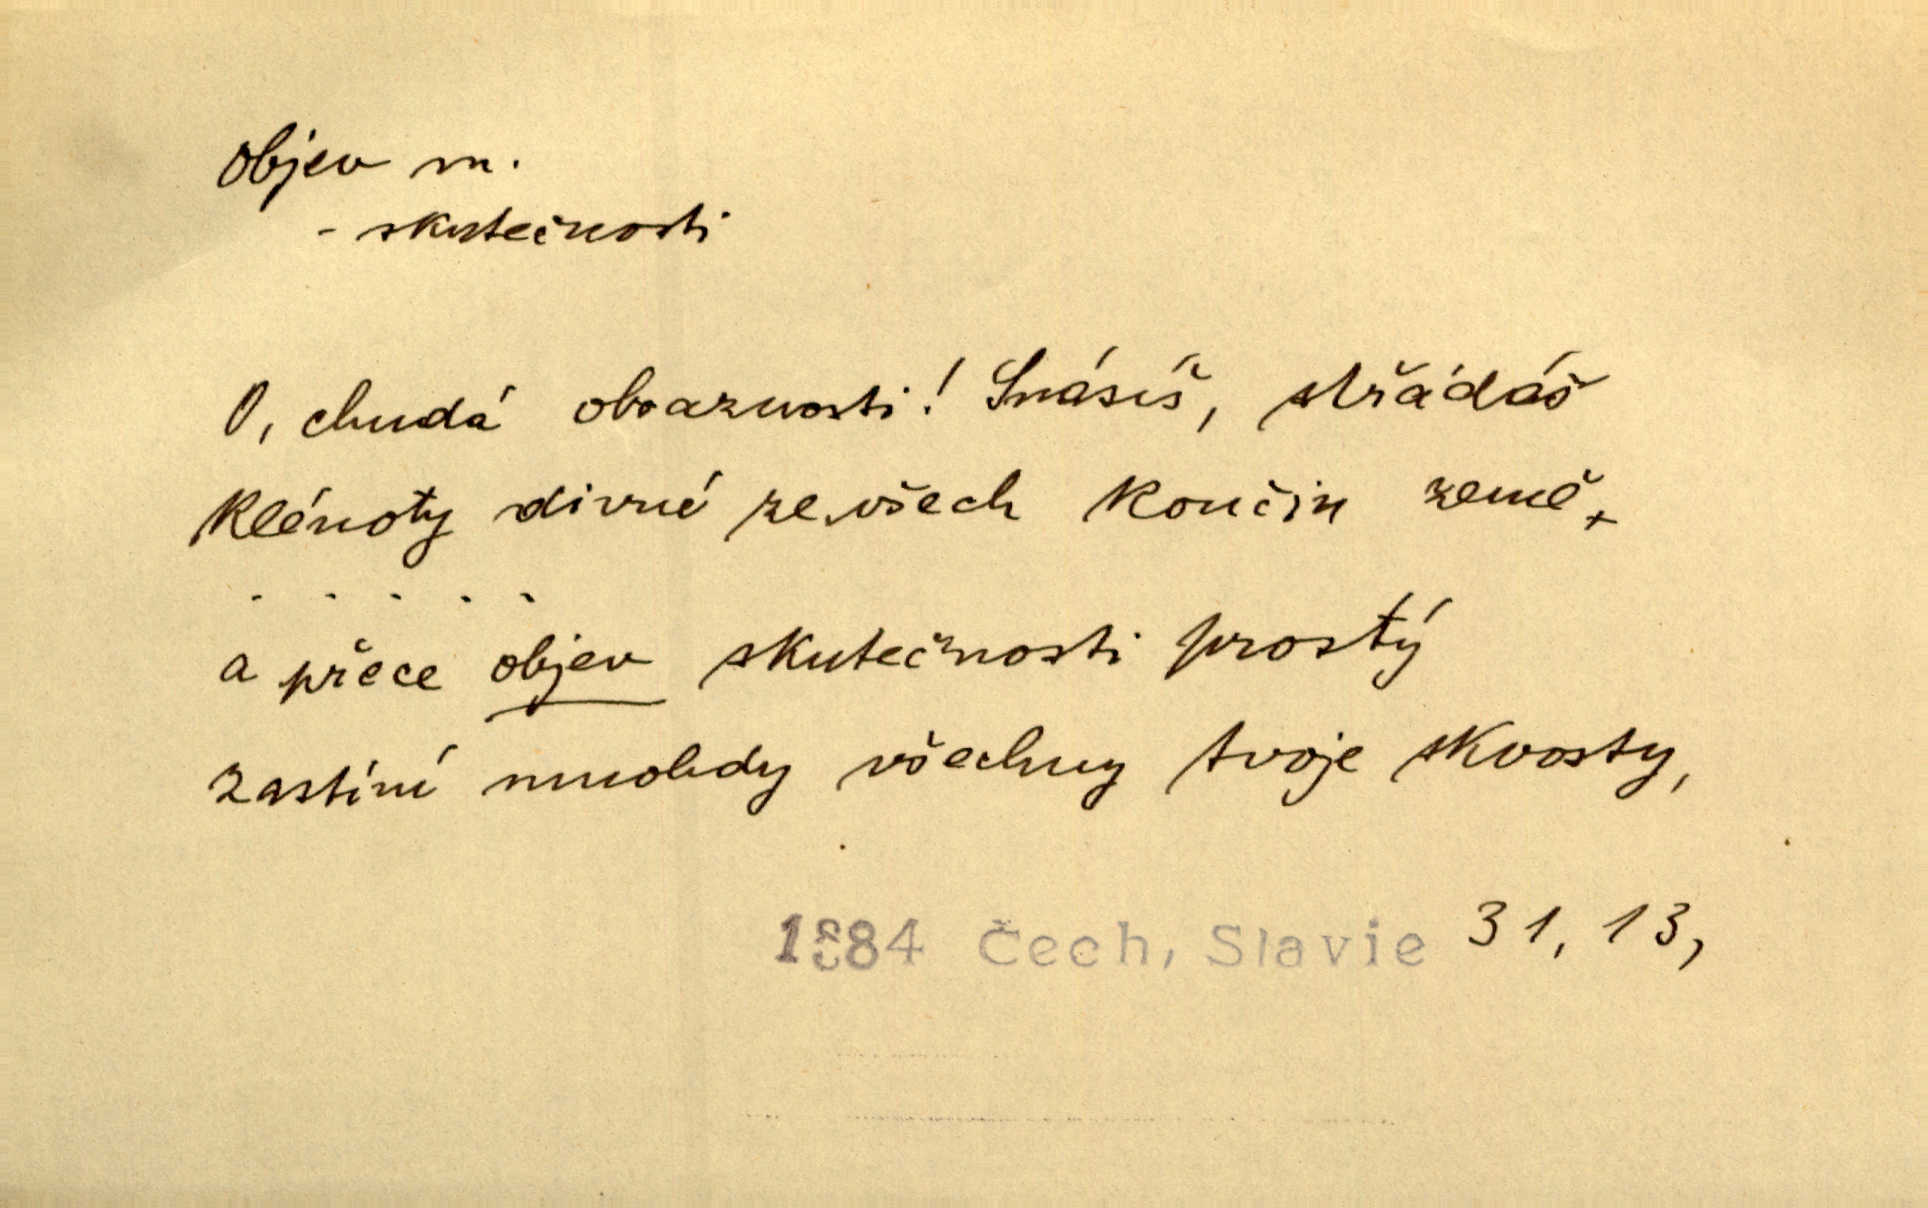 Objev m.
- skutečnosti
O, chudá obraznosti! Snášíš, střádáš
klénoty divné ze všech končin země,
. . . . .
a přece objev skutečnosti prostý
zastíní mnohdy všechny tvoje skvosty,
1884 Čech, Slavie 31, 13,